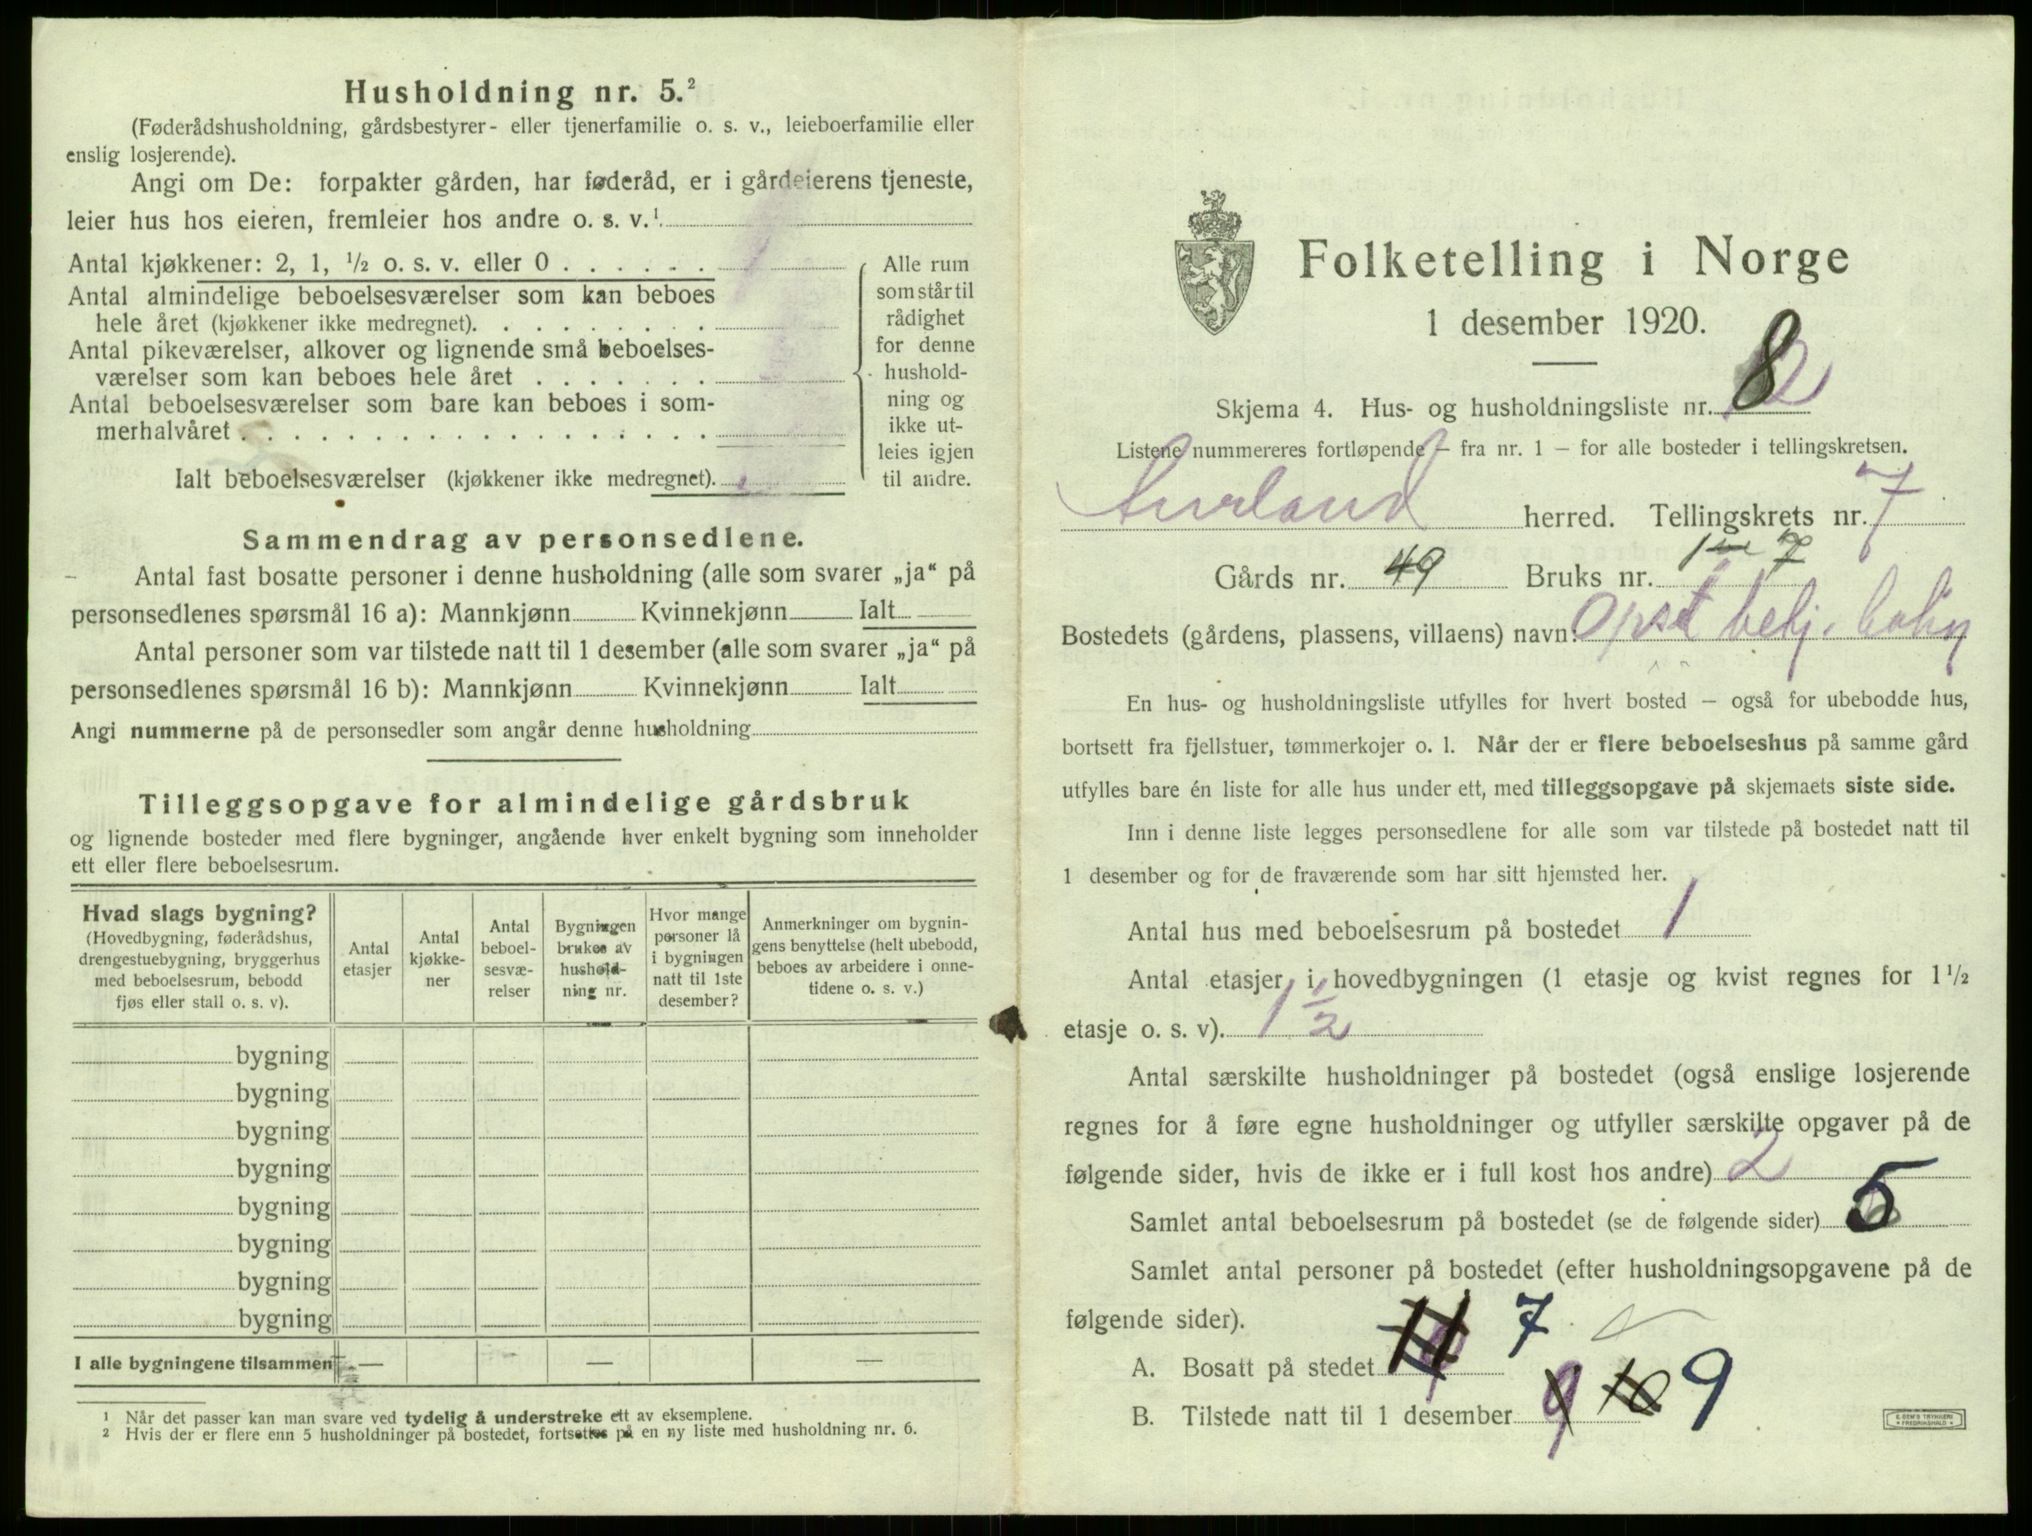 Husholdning nr. 5.²
(Føderådshusholdning, gårdsbestyrer- eller tjenerfamilie o. s. v., leieboerfamilie eller
enslig losjerende).
Angi om De: forpakter gården, har føderåd, er i gårdeierens tjeneste,
leier hus hos eieren, fremleier hos andre o. s. v.¹
Antal kjøkkener: 2, 1, ½ o. s. v. eller 0 . . . . . .
Antal almindelige beboelsesværelser som kan beboes
hele året (kjøkkener ikke medregnet). . . . . . . . .
Antal pikeværelser, alkover og lignende små beboelses-
værelser som kan beboes hele året . . . . . . .
Antal beboelsesværelser som bare kan beboes i som-
merhalvåret . . . . . . . . . . . . . . . . . .
Ialt beboelsesværelser (kjøkkener ikke medregnet).
Alle rum
som står til
rådighet
for denne
hushold-
ning og
ikke ut-
leies igjen
til andre.
Sammendrag av personsedlene.
Antal fast bosatte personer i denne husholdning (alle som svarer „ja“ på
personsedlenes spørsmål 16 a): Mannkjønn Kvinnekjønn Ialt
Antal personer som var tilstede natt til 1 desember (alle som svarer „ja“ på
personsedlenes spørsmål 16 b): Mannkjønn Kvinnekjønn Ialt
Angi nummerne på de personsedler som angår denne husholdning
Tilleggsopgave for almindelige gårdsbruk
og lignende bosteder med flere bygninger, angående hver enkelt bygning som inneholder
ett eller flere beboelsesrum.
Hvad slags bygning?
(Hovedbygning, føderådshus,
drengestuebygning, bryggerhus
med beboelsesrum, bebodd
fjøs eller stall o. s. v).
Antal
etasjer
Antal
kjøkke-
ner
Antal
beboel-
sesvæ-
relser
Bygningen
brukes av
hushold-
ning nr.
Hvor mange
personer lå
i bygningen
natt til 1ste
desember?
Anmerkninger om bygnin-
gens benyttelse (helt ubebodd,
beboes av arbeidere i onne-
tidene o. s. v.)
bygning
bygning
bygning
bygning
bygning
bygning
bygning
bygning
I alle bygningene tilsammen — — —
¹ Når det passer kan man svare ved tydelig å understreke ett av eksemplene.
² Hvis der er flere enn 5 husholdninger på bostedet, fortsettes på en ny liste med husholdning nr. 6.
Folketelling i Norge
1 desember 1920.
Skjema 4. Hus- og husholdningsliste nr. 8
Listene nummereres fortløpende – fra nr. 1 – for alle bosteder i tellingskretsen.
Aurland herred. Tellingskrets nr. 7
Gårds nr. 49 Bruks nr. 7
Bostedets (gårdens, plassens, villaens) navn:
En hus- og husholdningsliste utfylles for hvert bosted – også for ubebodde hus,
bortsett fra fjellstuer, tømmerkojer o. l. Når der er flere beboelseshus på samme gård
utfylles bare én liste for alle hus under ett, med tilleggsopgave på skjemaets siste side.
Inn i denne liste legges personsedlene for alle som var tilstede på bostedet natt til
1 desember og for de fraværende som har sitt hjemsted her.
Antal hus med beboelsesrum på bostedet 1
Antal etasjer i hovedbygningen (1 etasje og kvist regnes for 1½
etasje o. s. v). 1½
Antal særskilte husholdninger på bostedet (også enslige losjerende
regnes for å føre egne husholdninger og utfyller særskilte opgaver på de
følgende sider, hvis de ikke er i full kost hos andre) 2
Samlet antal beboelsesrum på bostedet (se de følgende sider) 5
Samlet antal personer på bostedet (efter husholdningsopgavene på de
følgende sider).
A. Bosatt på stedet 11 7
B. Tilstede natt til 1 desember 9 10 9
E. SEM'S TRYKKERI
FREDRIKSHALD